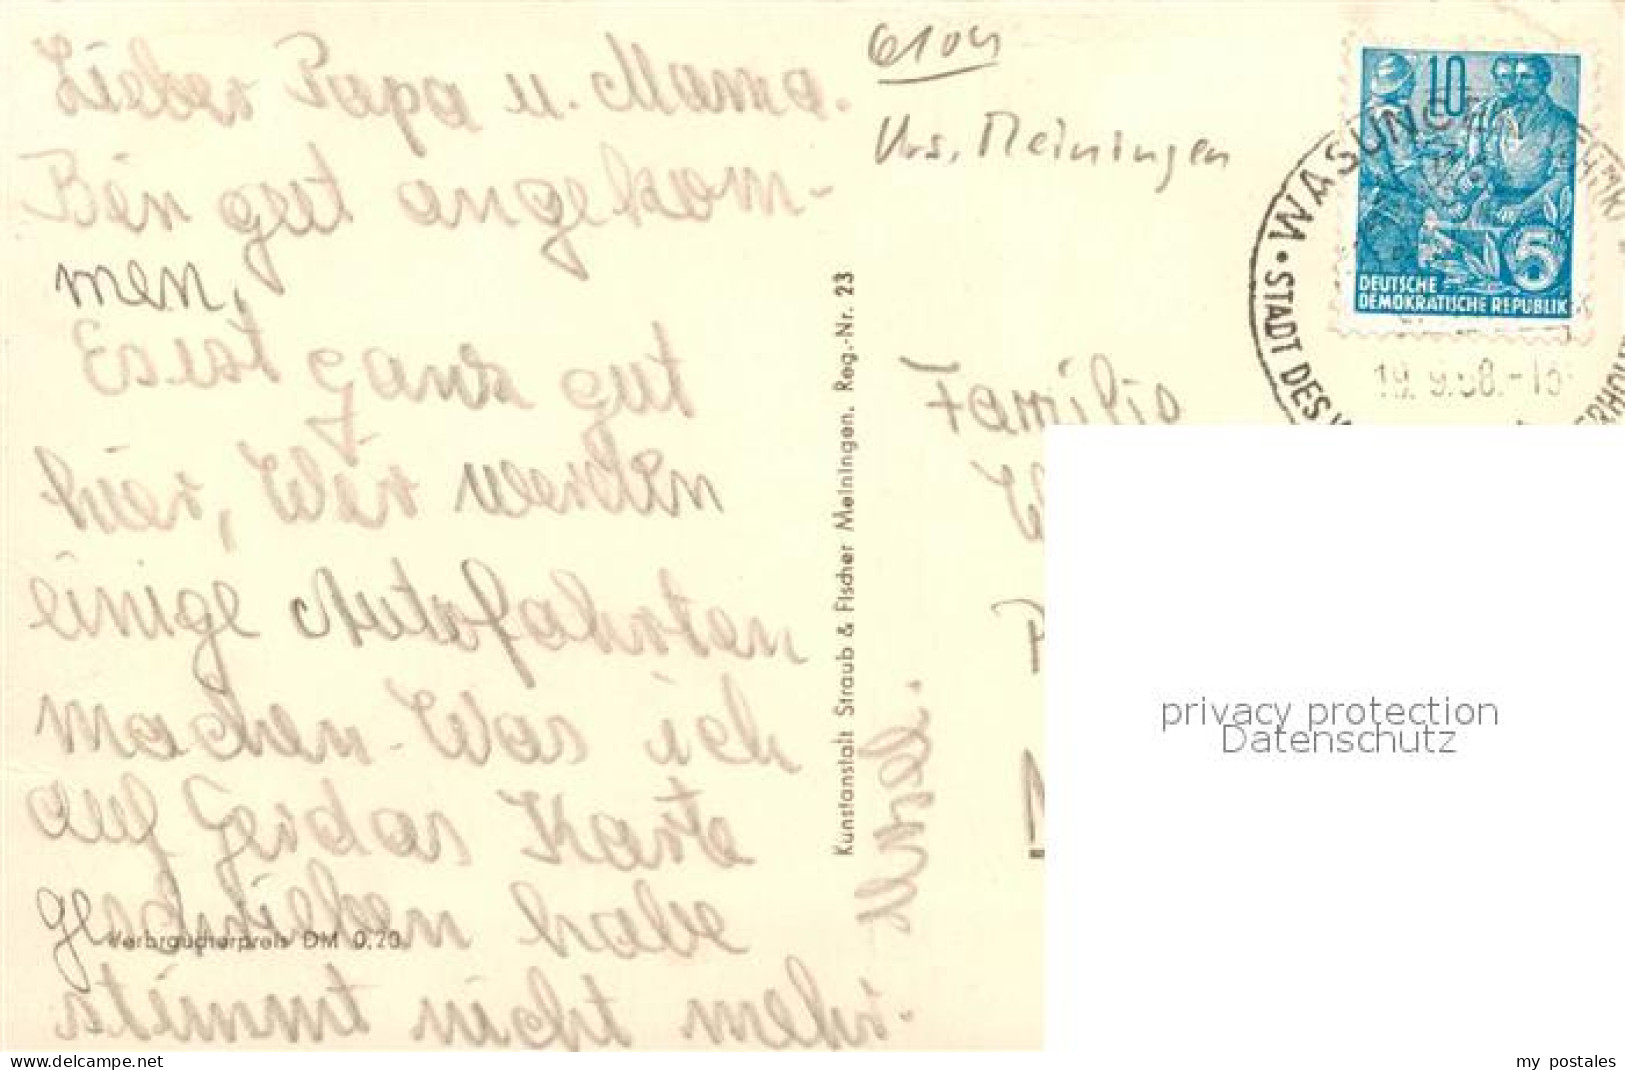 Lieber Papa u. Mama.
Bin gut angekom-
men,
Es ist ganz gut
hier, Wir werden
einige Autofahrten
machen. Was ich
auf Gerdas Karte
geschrieben habe
stimmt nicht mehr.
Verbraucherpreis DM 0,20
Kunstanstalt Straub & Fischer Meiningen. Reg.-Nr. 23
6104
Krs. Meiningen
10
5
DEUTSCHE
DEMOKRATISCHE REPUBLIK
WASUNGEN
STADT DES
19.9.58.-18
Familie
privacy protection
Datenschutz
my postales